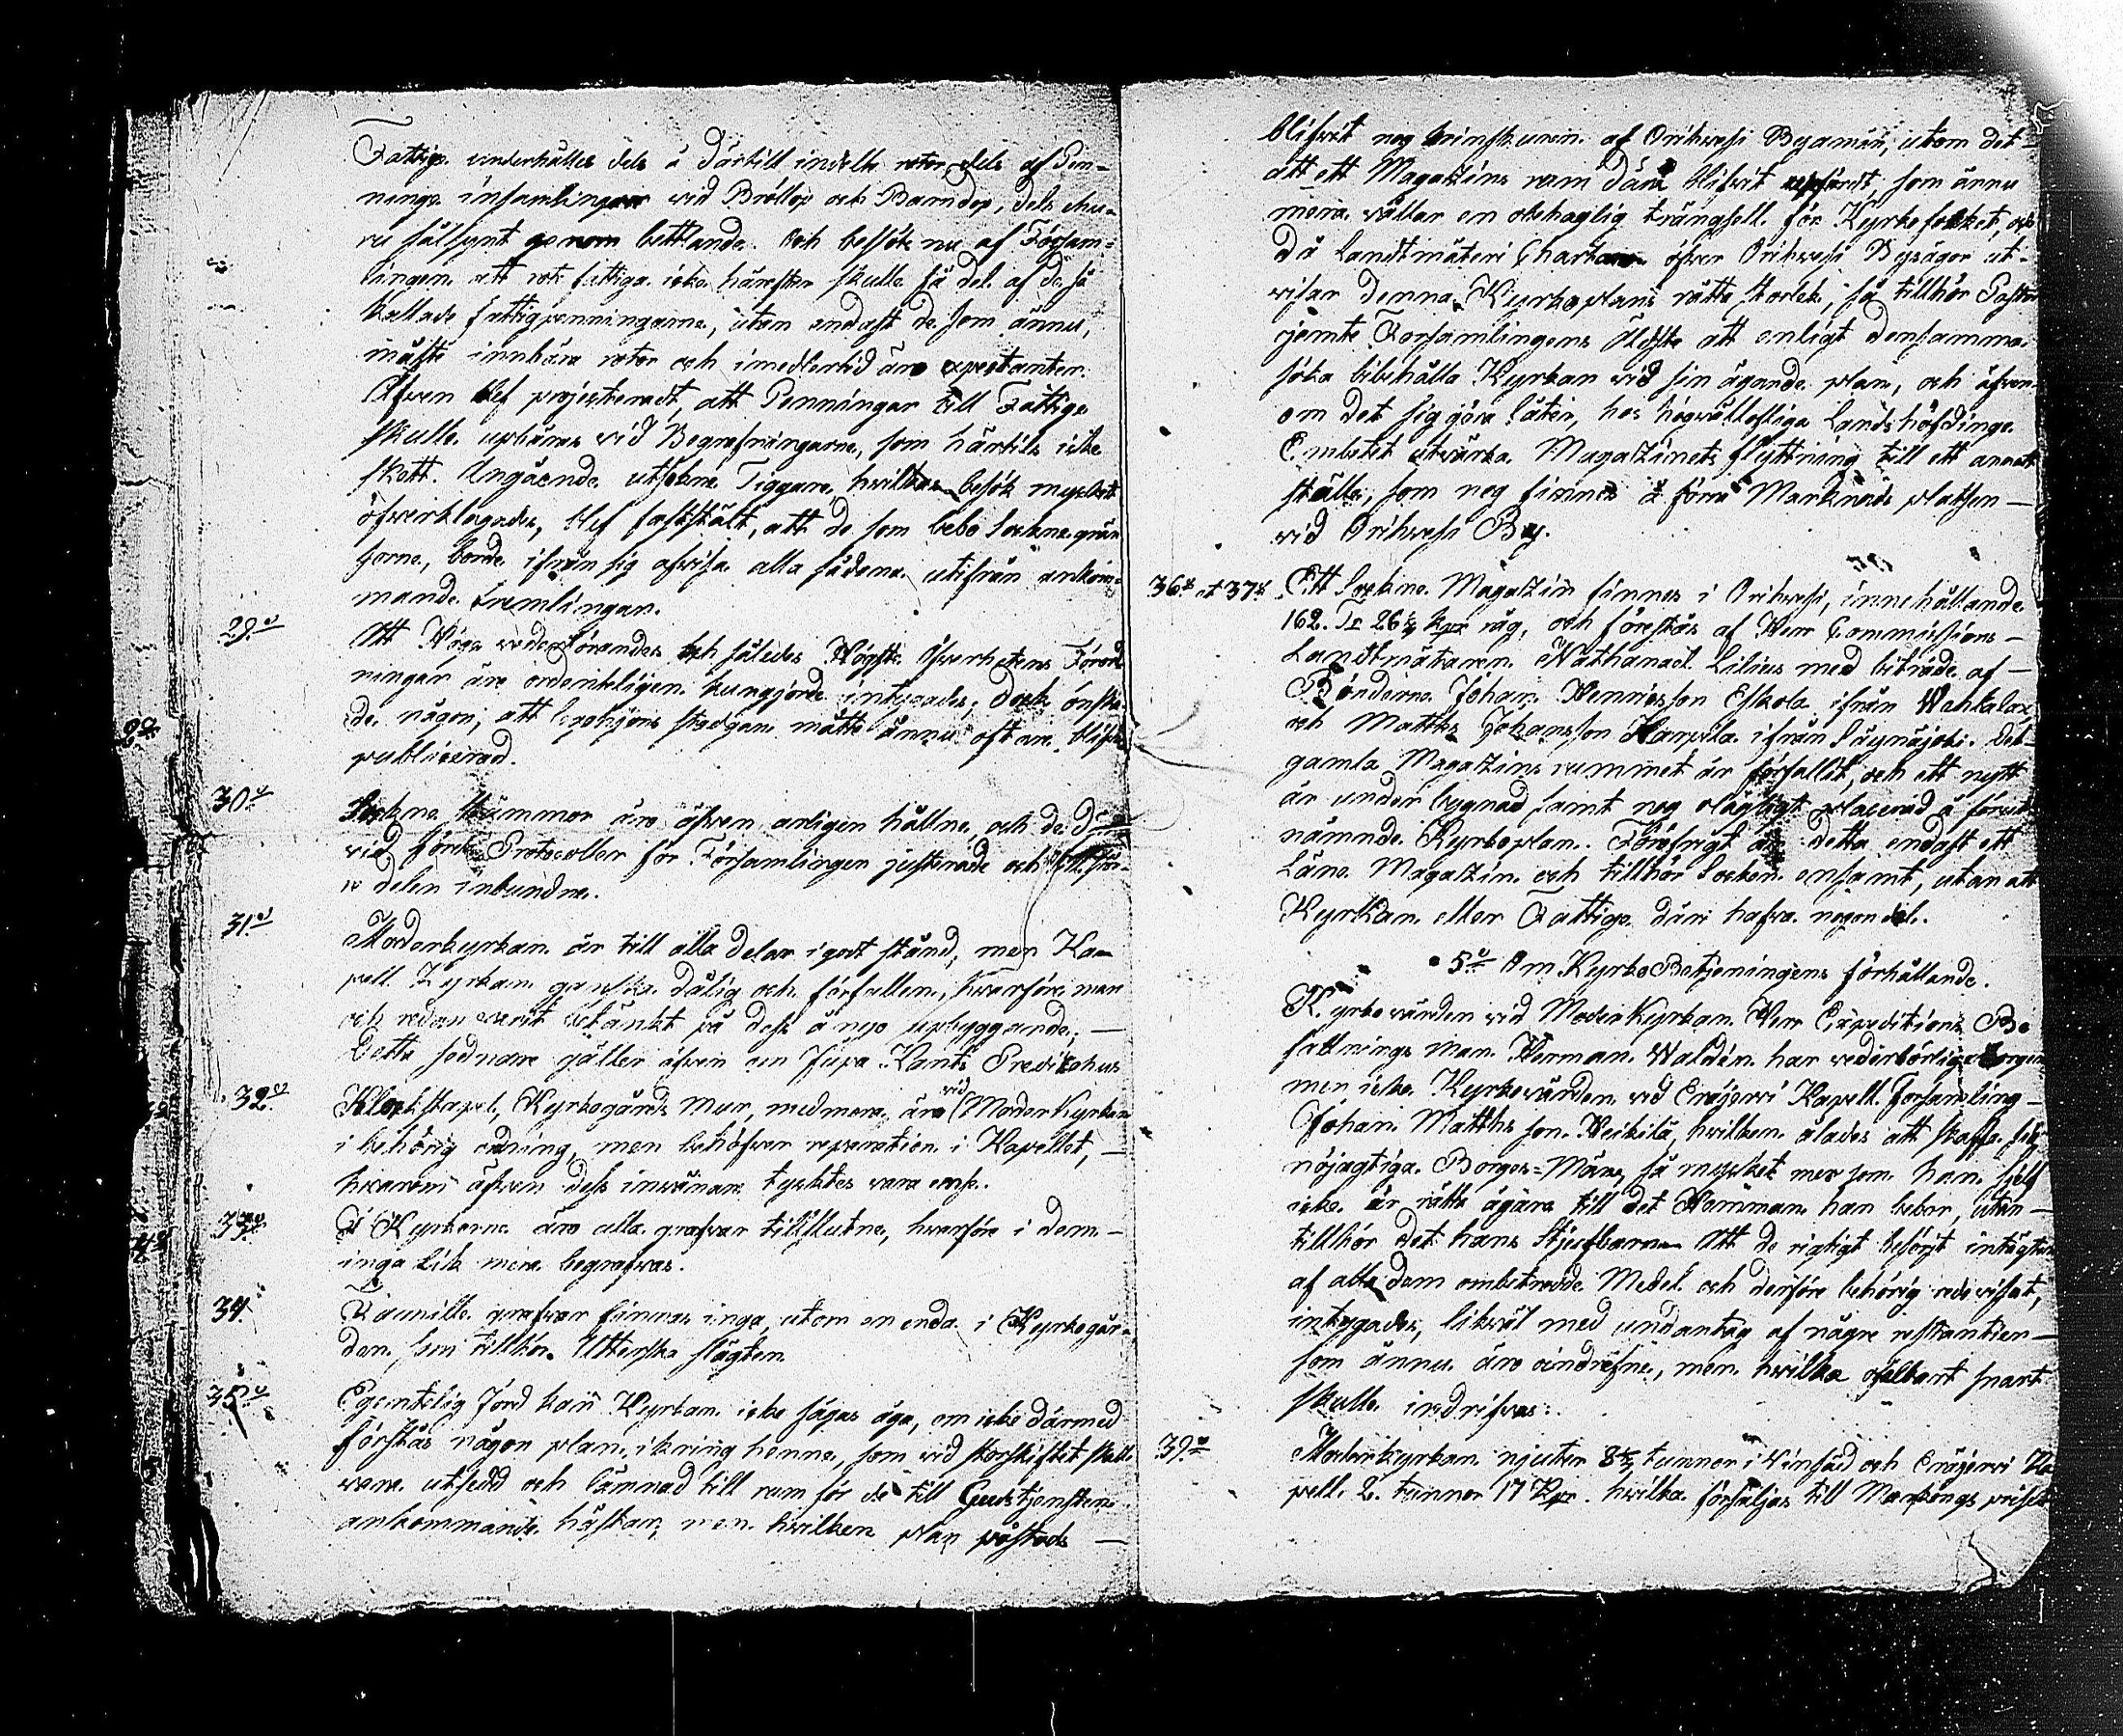 Fattige underhålles dels å därtill indelte rotor, dels af Pen-
ninge insamlingar vid Bröllop och Barndop, dels ehu-
ru sällsynt genom bettlande. Och beslöts nu af Försam-
lingen att rote fattiga icke härefter skulle få del af de så
kallade fattigpenningarne, utom endast de som ännu,
måste innebära rotor och imedlertid äro expectanter.
Äfven blef projecteradt, att Penningar till Fattige
skulle upbäras vid Begrafningarne, som härtils icke
skett. Angående utsokne Tiggare, hvilkas besök mycket
öfverklagades, blef fastställt, att de som bebo Sockne grän
serne, borde ifrån sig afvisa alla sådana utifrån ankom-
mande fremlingar.
29:o Att Höga vederbörandes och således Högste Öfverhetens Förord
ningar äro ordenteligen kungjorde intygades; dock önska-
de någon, att Legohjons stadgan måtte ännu oftare blifva
publicerad.
30:o Sockne stämmor äro äfven årligen hållne, och de där
vid förde Protocoller för Församlingen justerade och till stör-
re delen inbundne.
31:o Moderkyrkan är till alla delar i godt stånd, men Ka-
pell Kyrkan ganska dålig och förfallen, hvarföre man
ock redan varit betänkt på dess å nyo upbyggande; —
Detta sednare gäller äfven om Jupa Kants Predikohus
32:o Klockstapel, Kyrkogårds Mur, med mera, äro vid Moder Kyrkan
i behörig ordning, men behöfver reparation i Kapellet, —
hvarom äfven dess invånare tycktes vara ense.
33:o I Kyrkorne äro alla grafvar tillslutne, hvarföre i dem —
inga Lik mera begrafvas.
34. Familie grafvar finnas inga, utom en enda i Kyrkogår-
den, som tillhör Utterska slägten
35:o Egentelig Jord kan Kyrkan icke sägas äga, om icke därmed
förstås någon plan, ikring henne, som vid storskiftet skall
vara utsedd och lämnad till rum för de till Gudstjensten
ankommande hästar, men hvilken plan påstods —
blifvit nog kringskuren af Orihvesi Byamän, utom det
att ett Magazins rum däri blifvit uppfördt, som ännu
mera vållar en obehaglig trängsell för Kyrko folket, och
då Landtmäteri Chartan öfver Orihvesi Bysägor ut-
visar denna Kyrkoplans rätta storlek, så tillhör Pastor
jemte Församlingens Äldste att enligt densamma
söka bibehålla Kyrkan vid sin ägande plan, och äfven
om det sig göra låter, hos högvällofliga Landshöfdinge
Embetet utvärka Magazinets flyttning till ett annat
ställe, som nog finnes å förra Marknads platsen —
vid Orihvesi By.
36:o et 37:o Ett Sockne Magazin finnes i Orihvesi, innehållande
162. Tr 26 ½ kpr råg, och förestås af Herr Commissions —
Landtmätaren Nathanael Lilius med biträde af —
Bönderne Johan Henricsson Eskola ifrån Wehkalax
och Matths Johansson Harvela ifrån Säynäjoki. Det
gamla Magazins rummet är förfallit, och ett nytt
är under bygnad samt nog olägligt placerad å förut
nämnde Kyrkoplan. Föröfrigt är detta endast ett
Låne Magazin och tillhör Socken ensamt, utan att
Kyrkan eller Fattige däri hafva någon del.
5:o Om Kyrko Betjeningens förhållande.
Kyrkovärden vid Moder Kyrkan Herr Expeditions Be
fallnings Man Herman Waldén har vederbörlig Borgen
men icke Kyrkovärden vid Eräjervi Kapell Församling —
Johan Matths son Heikilä, hvilken ålades att skaffa sig
nöjagtige Borges-Män, så mycket mer som han sjelf
icke är rätta ägare till det Hemman han bebor, utan —
tillhör det hans Stjufbarn. Att de rigtigt besörjt intägten
af alla dem ombetrodde Medel och derföre behörig redovisat,
intygades, likväl med undantag af några restantier —
som ännu äro oindrifne, men hvilka ofelbart snart
skulle indrifvas.
39:o Moderkyrkan njuter 8 ½ tunnor i Vinsäd och Eräjervi Ka
pell 2. tunnor 17 Kpr. hvilka försäljas till Markegångs priset